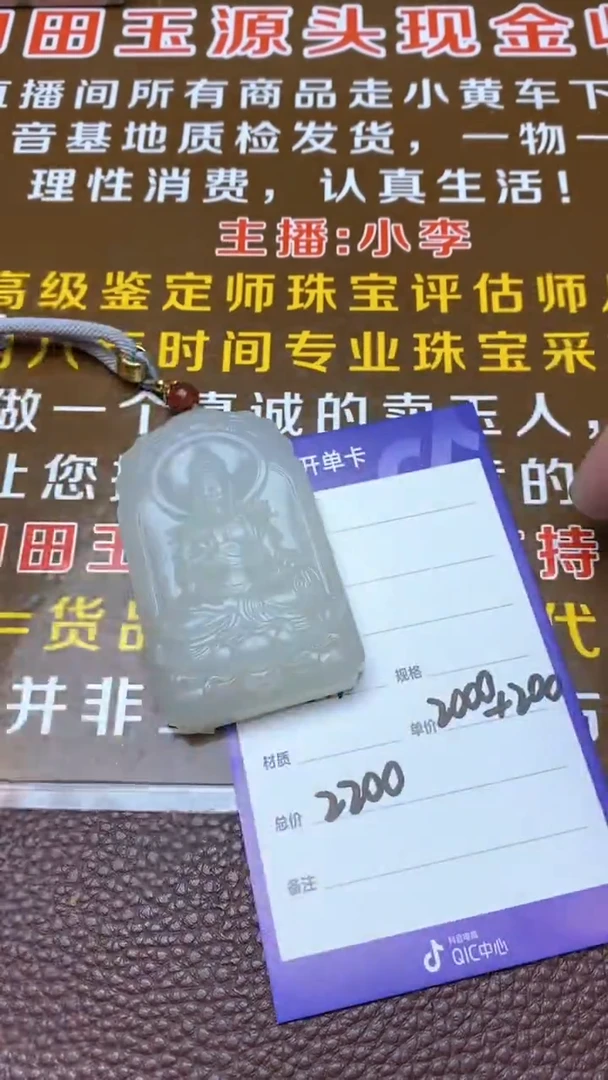 田玉源头现金
直播间所有商品走小黄车下
音基地质检发货，一物一
理性消费，认真生活！
主播:小李
高级鉴定师珠宝评估师
时间专业珠宝采
做一个真诚的卖玉人，
让您
的
田玉
持
货品
代
并非
开单卡
规格
单价2000+200
材质
总价 2200
备注
抖音电商
QIC中心